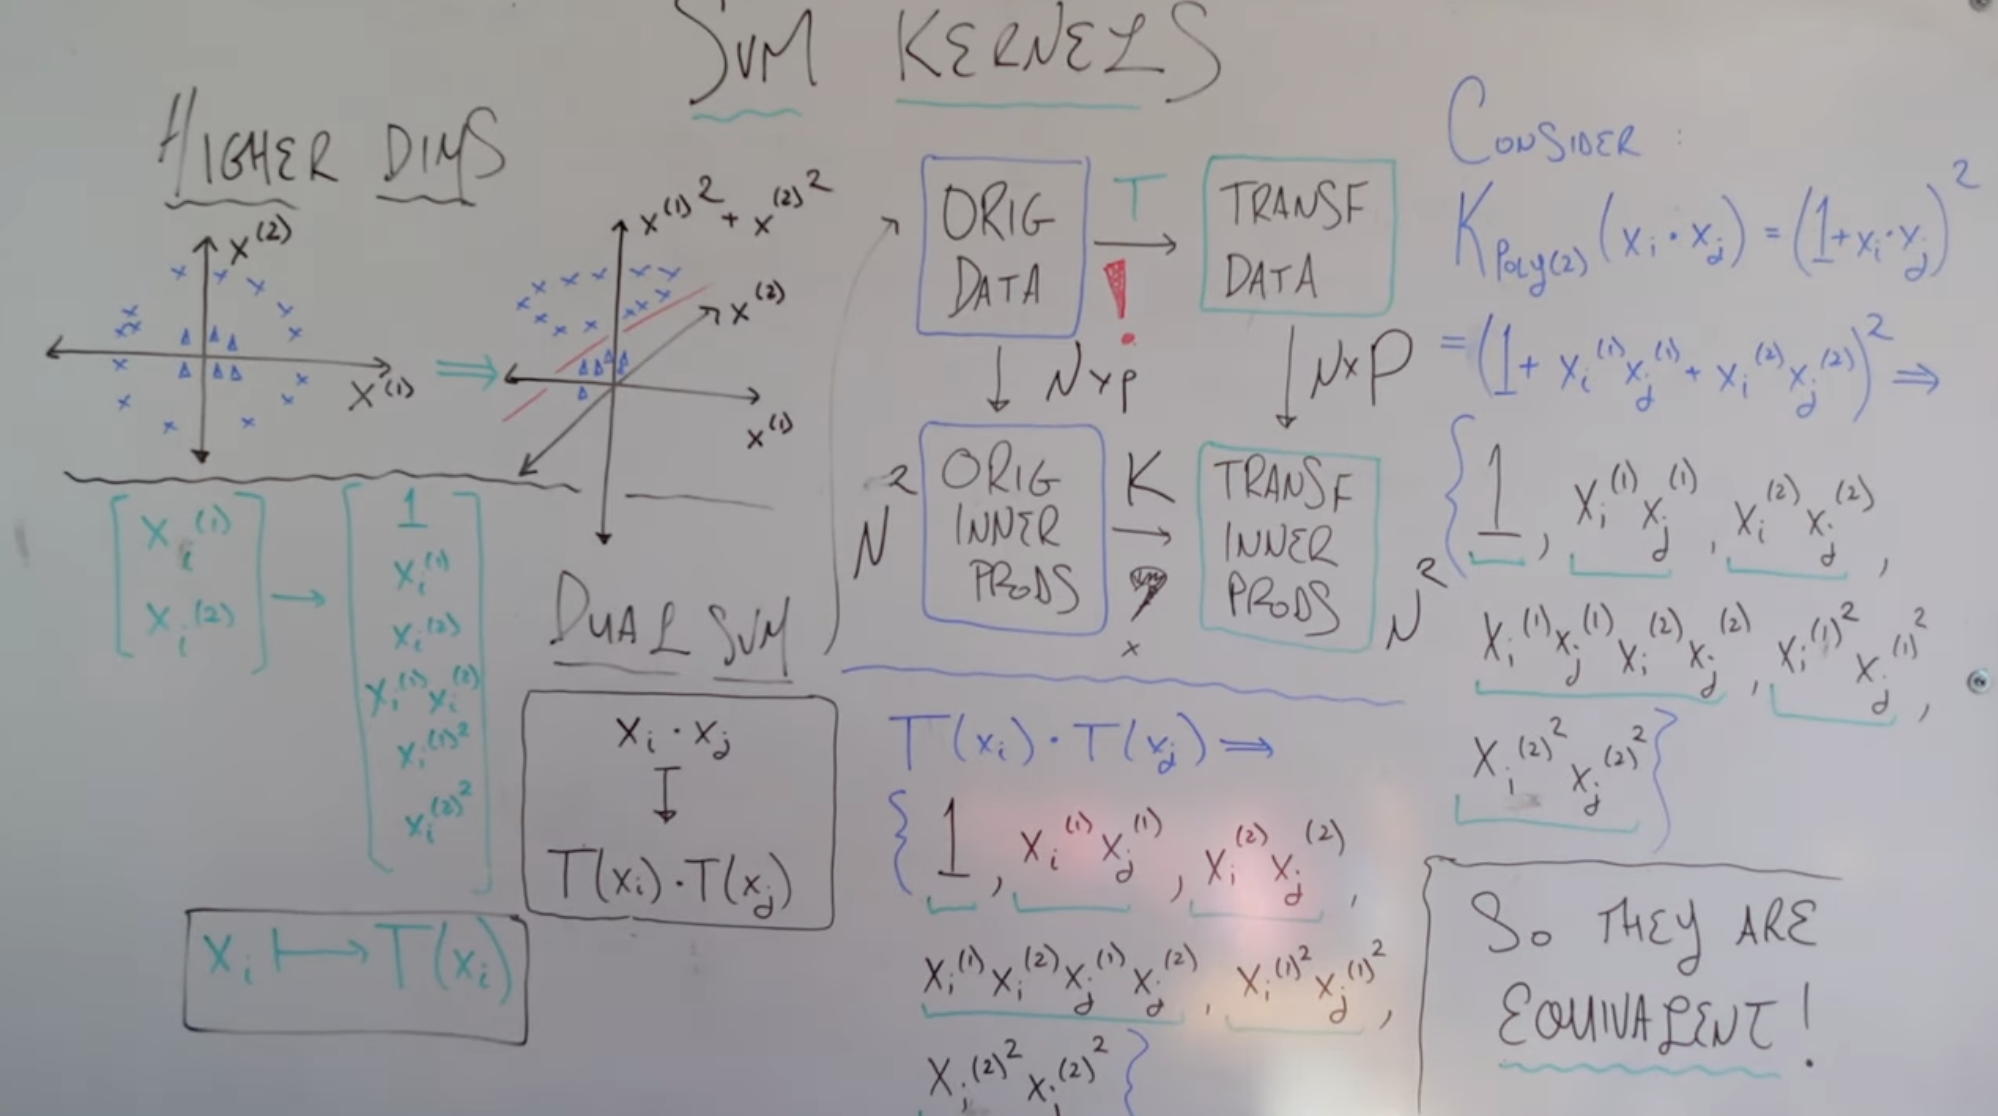 SVM KERNELS
HIGHER DIMS
x^(2)
x^(1)
x^(1)^2 + x^(2)^2
x^(2)
x^(1)
[x_i^(1)
x_i^(2)]
→
[1
x_i^(1)
x_i^(2)
x_i^(1) x_i^(2)
x_i^(1)^2
x_i^(2)^2]
x_i ↦ T(x_i)
DUAL SVM
x_i · x_j
↧
T(x_i) · T(x_j)
ORIG
DATA
T
!
TRANSF
DATA
N×p
N×P
N^2
ORIG
INNER
PRODS
K
x
TRANSF
INNER
PRODS
N^2
T(x_i) · T(x_j) ⇒
{1, x_i^(1) x_j^(1), x_i^(2) x_j^(2),
x_i^(1) x_i^(2) x_j^(1) x_j^(2), x_i^(1)^2 x_j^(1)^2,
x_i^(2)^2 x_j^(2)^2}
CONSIDER :
K_Poly(2) (x_i · x_j) = (1 + x_i · x_j)^2
= (1 + x_i^(1) x_j^(1) + x_i^(2) x_j^(2))^2 ⇒
{1, x_i^(1) x_j^(1), x_i^(2) x_j^(2),
x_i^(1) x_j^(1) x_i^(2) x_j^(2), x_i^(1)^2 x_j^(1)^2,
x_i^(2)^2 x_j^(2)^2}
SO THEY ARE
EQUIVALENT!